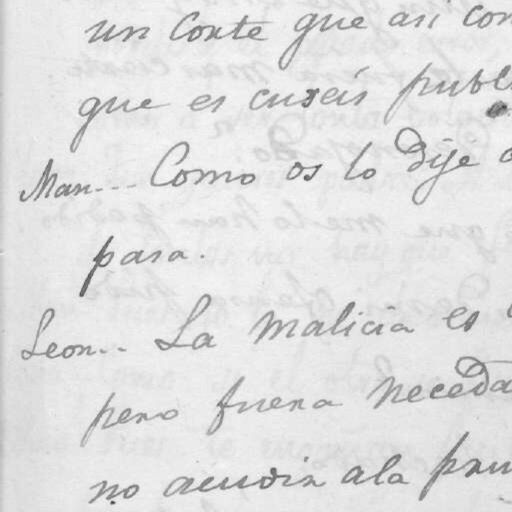 un Corte que asi con
que es cureis publ
Man... Como os lo dije a
pasa.
Leon... La malicia es
pero fuera neceda
no acudir a la pru